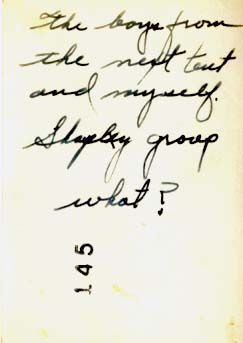 The boys from
the next tent
and myself.
Shapley group
what?
145